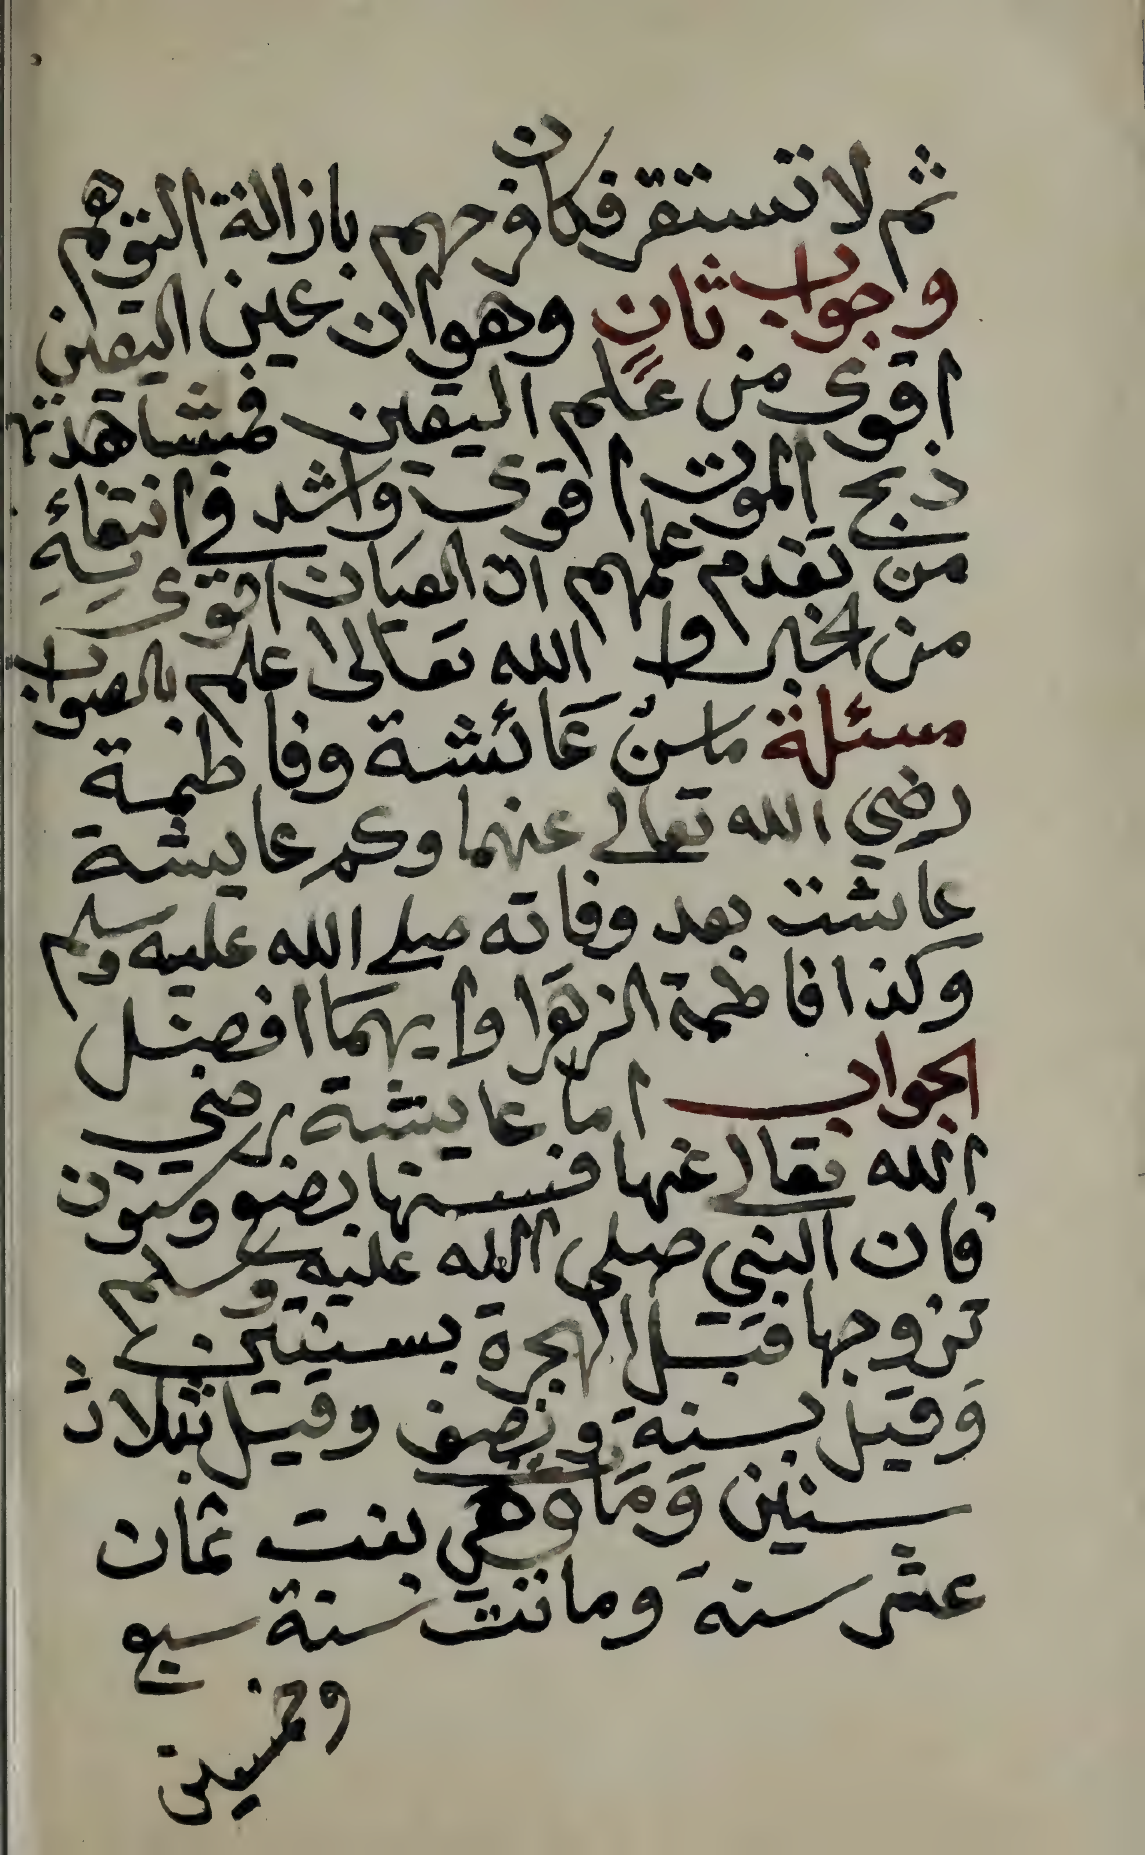 ثم لا تستقر فكان فرحهم بازالة التوهم
وجواب ثانٍ وهو ان عين اليقين
اقوى من علم اليقين فمشاهدتهم
ذبح الموت اقوى واشد في انتفائه
من تقدم علمهم ان العيان اقوى
من الخبر والله تعالى اعلم بالصواب
مسئلة ما سن عائشة وفاطمة
رضي الله تعالى عنهما وكم عايشة
عاشت بعد وفاته صلى الله عليه وسلم
وكذا فاطمة الزهرا وايهما افضل
الجواب اما عايشة رضي
الله تعالى عنها فسنها بضع وستون
فان النبي صلى الله عليه وسلم
تزوجها قبل الهجرة بسنتين
وقيل بسنة ونصف وقيل بثلاث
سنين ومات وهي بنت ثمان
عشر سنة وماتت سنة سبع
وخمسين